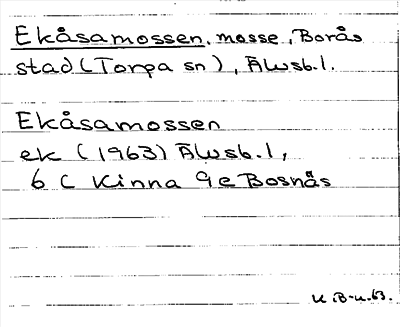 Ekåsamossen, mosse, Borås
stad (Torpa sn), Älvsb.l.
Ekåsamossen
ek (1963) Älvsb.l,
6 C Kinna 9e Bosnäs